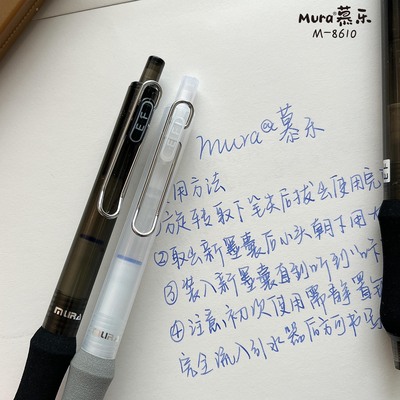 Mura慕乐
M-8610
mura 慕乐
用方法
旋转取下笔尖后拔出使用完
②取出新墨囊后小头朝下用
③装入新墨囊直到听到
④注意:初次使用需静置
完全流入引水器后方可书写
EF
EF
MURA
MURA
EF